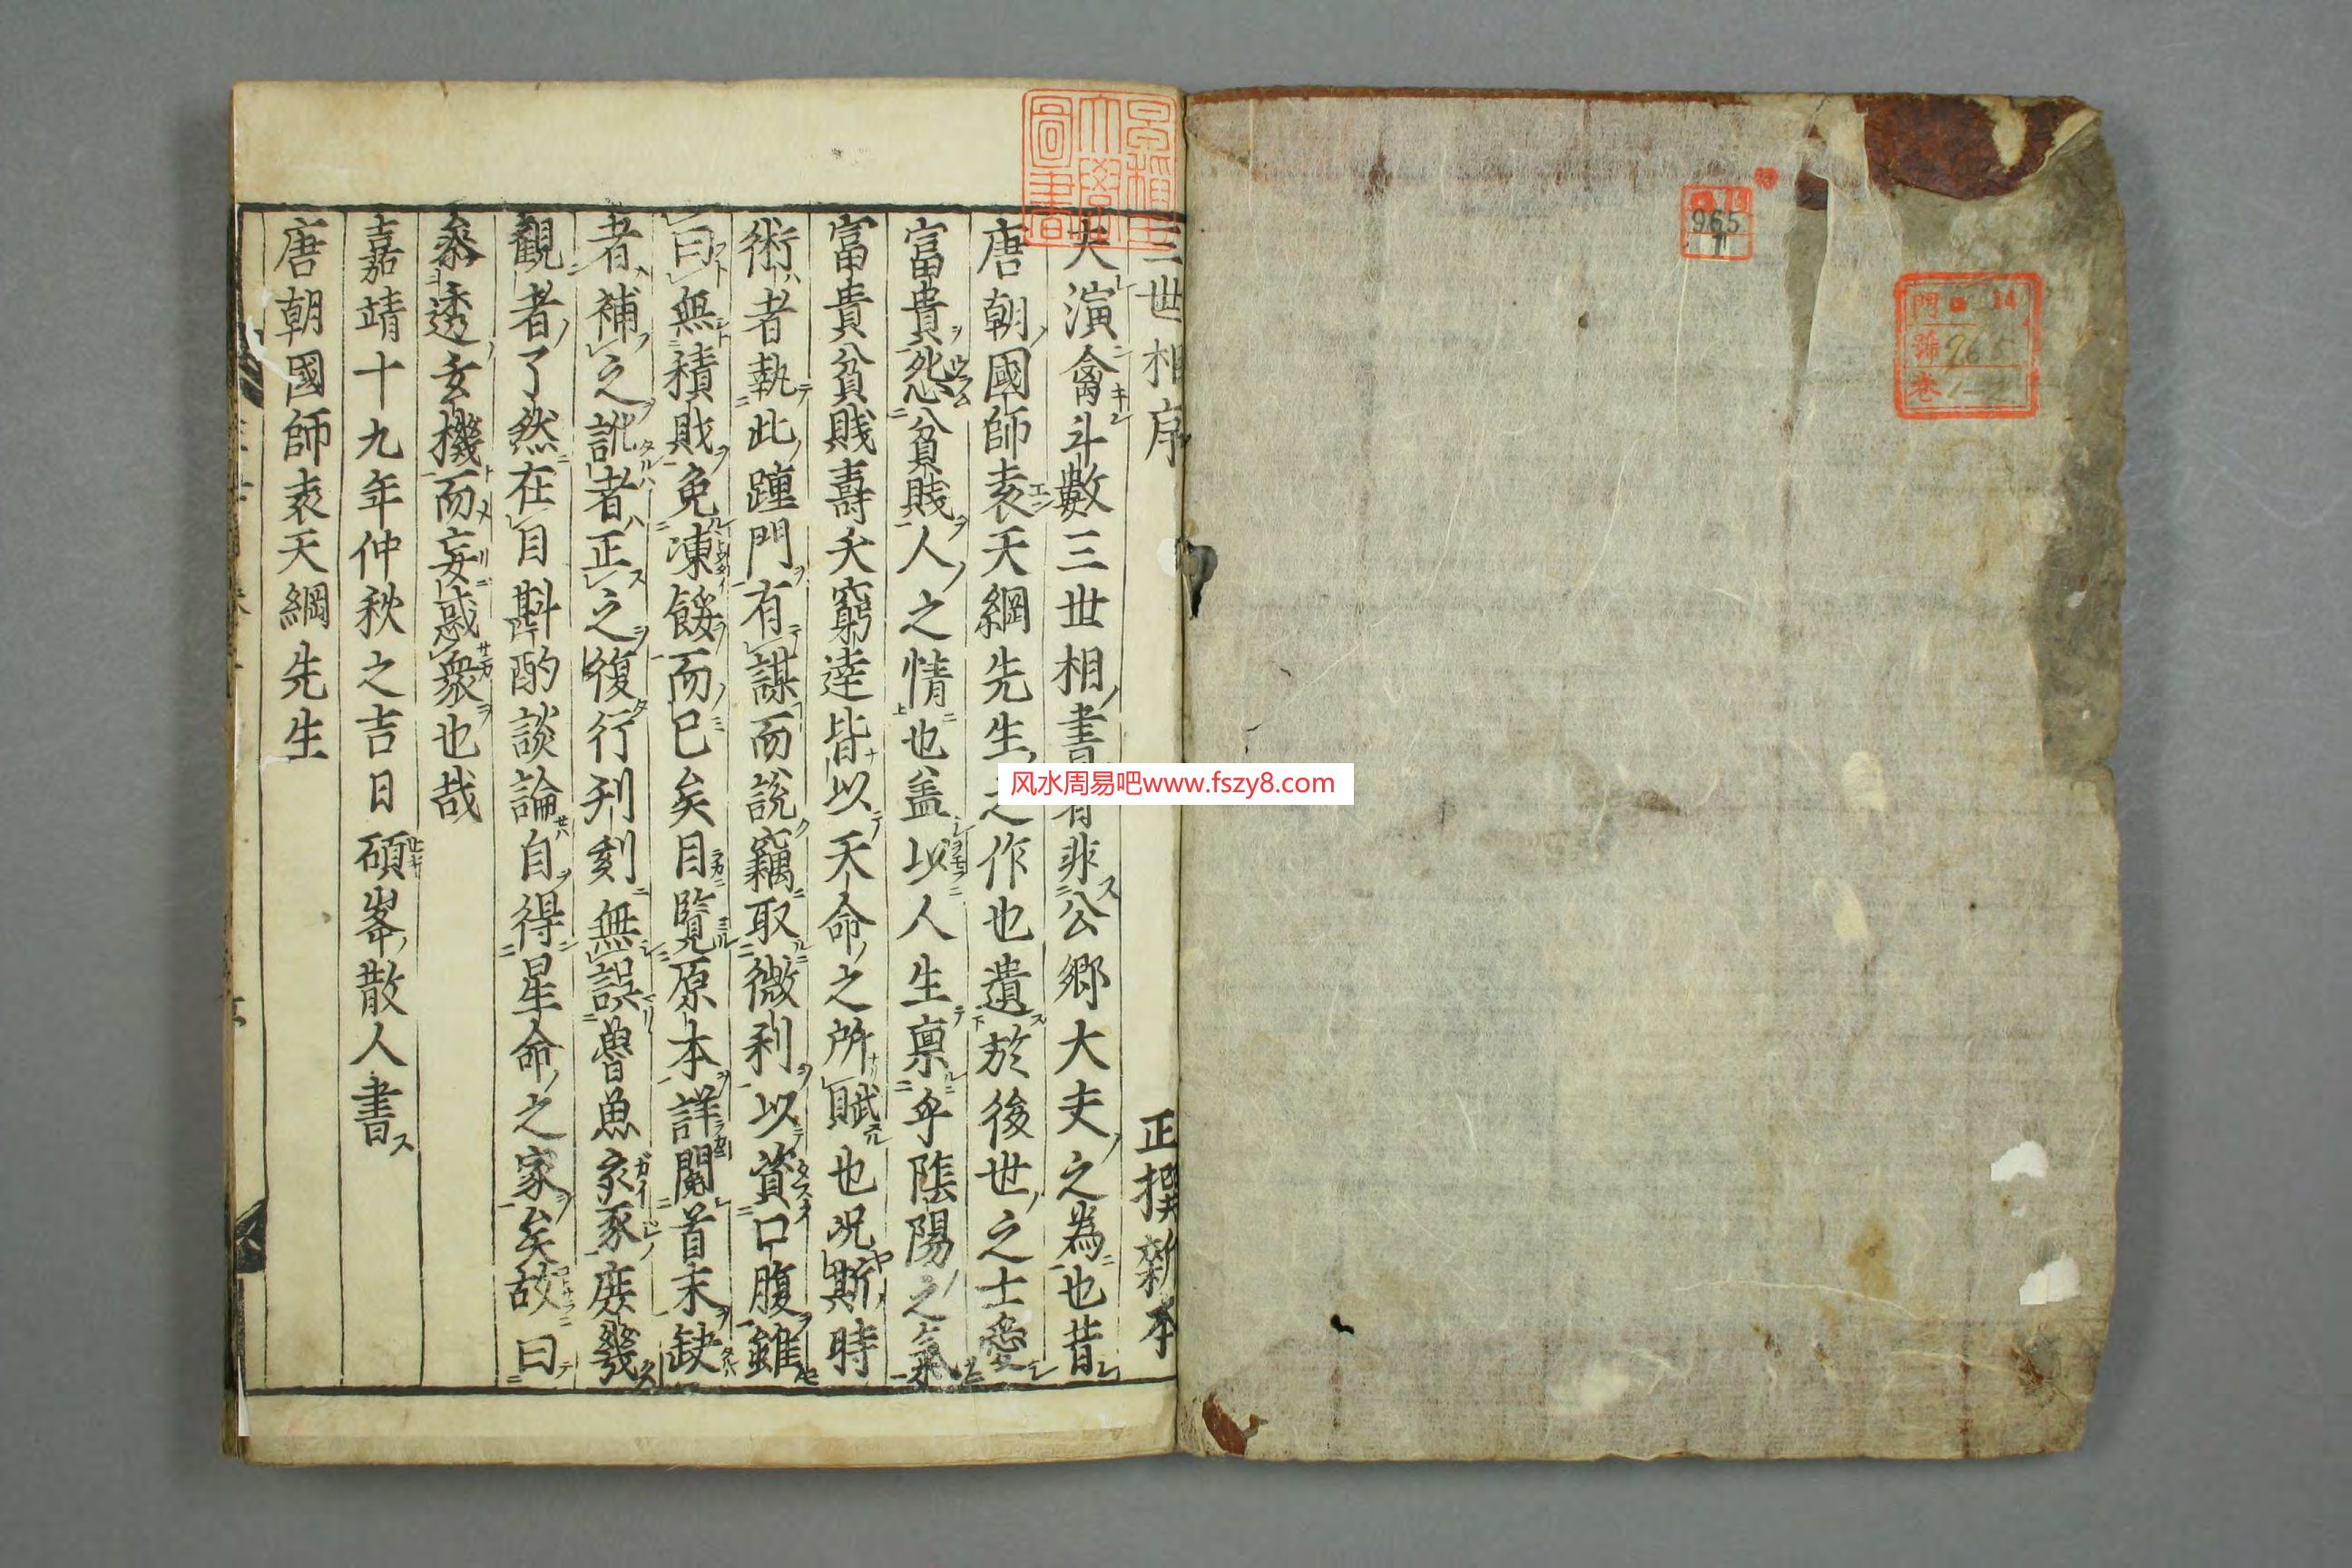 三世相序 正撰新本
夫演禽斗數三世相書者非公鄉大夫之為也昔
唐朝國師袁天綱先生之作也遺於後世之士愛
富貴怨貧賤人之情也盖以人生禀乎陰陽之氣
富貴貧賤壽夭窮達皆以天命之所賦也况斯時
術者執此踵門有謀而說竊取微利以資口腹雖
曰無積財免凍餒而已矣目覧原本詳閱首末缺
者補之訛者正之復行刋刻無誤魯魚亥豕庶幾
觀者了然在目斟酌談論自得星命之家矣故曰
叅透玄機而妄惑衆也哉
嘉靖十九年仲秋之吉日碩峯散人書
唐朝國師袁天綱先生
早稻田大學圖書
965
1
門
號 965
卷 1-2
风水周易吧www.fszy8.com